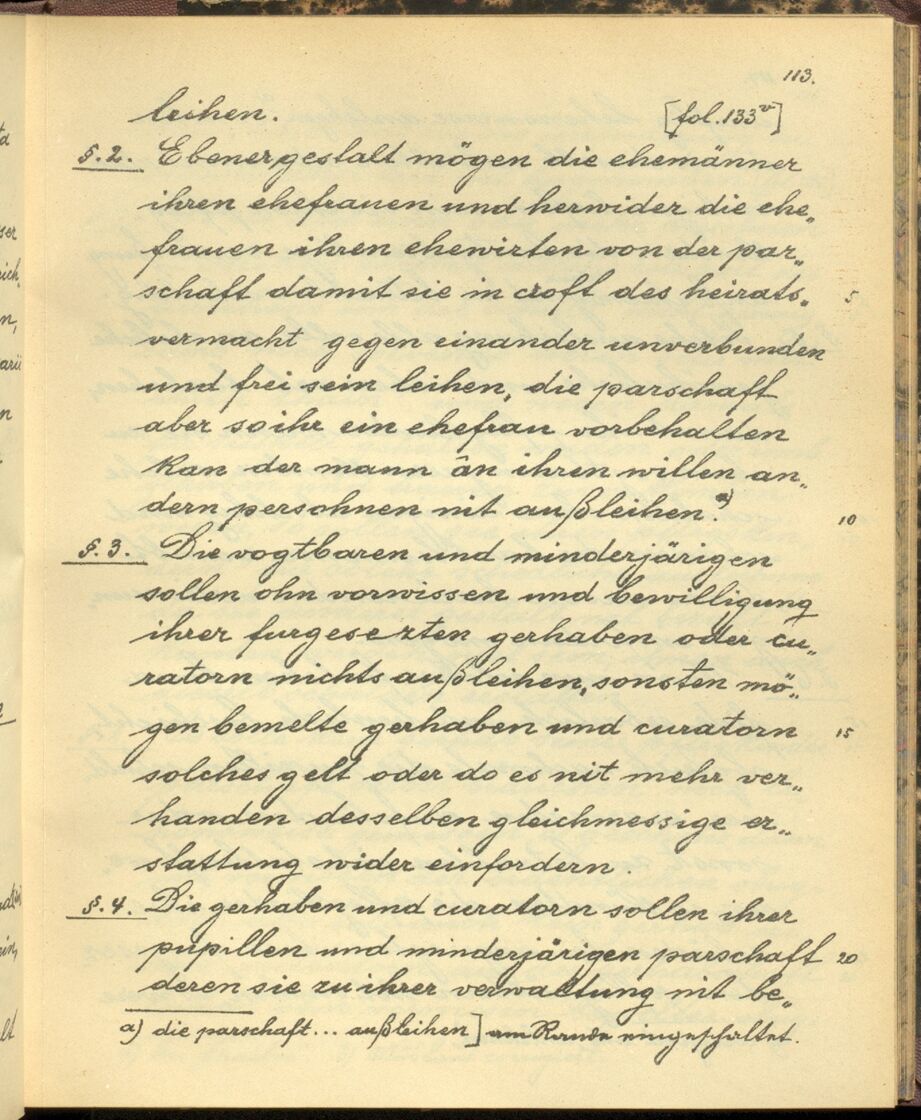 113.
leihen. [fol. 133v]
§. 2. Ebenergestalt mögen die ehemänner
ihren ehefrauen und herwider die ehe„
frauen ihren ehewirten von der par„
schaft damit sie in croft des heirats„ 5
vermacht gegen einander unverbunden
und frei sein leihen, die parschaft
aber so ihr ein ehefrau vorbehalten
kan der mann ân ihren willen an„
dern persohnen nit außleihen. a) 10
§. 3. Die vogtbaren und minderjärigen
sollen ohn vorwissen und bewilligung
ihrer furgesezten gerhaben oder cu„
ratorn nichts außleihen, sonsten mö„
gen bemelte gerhaben und curatorn 15
solches gelt oder do es nit mehr ver„
handen desselben gleichmessige er„
stattung wider einfordern.
§. 4. Die gerhaben und curatorn sollen ihrer
pupillen und minderjärigen parschaft 20
deren sie zu ihrer verwaltung nit be„
a) die parschaft... außleihen] am Rande eingeschaltet.